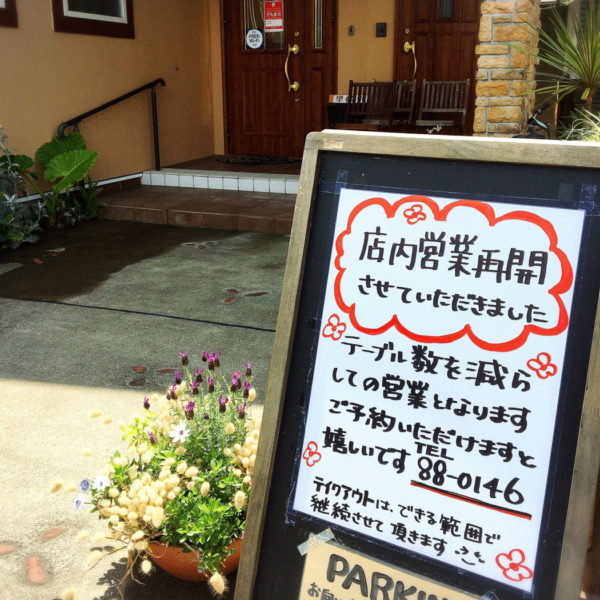 FREE
Wi-Fi
店内営業再開
させていただきました
テーブル数を減ら
しての営業となります
ご予約いただけますと
嬉しいです TEL 88-0146
テイクアウトは、できる範囲で
継続させて頂きます
PARKIN